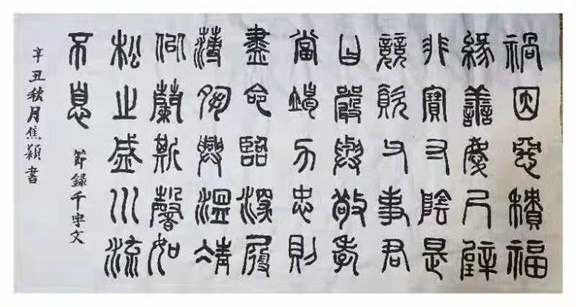 禍因惡積福
緣善慶尺璧
非寶寸陰是
競資父事君
曰嚴與敬孝
當竭力忠則
盡命臨深履
薄夙興溫凊
似蘭斯馨如
松之盛川流
不息
節錄千字文
辛丑秋月焦穎書